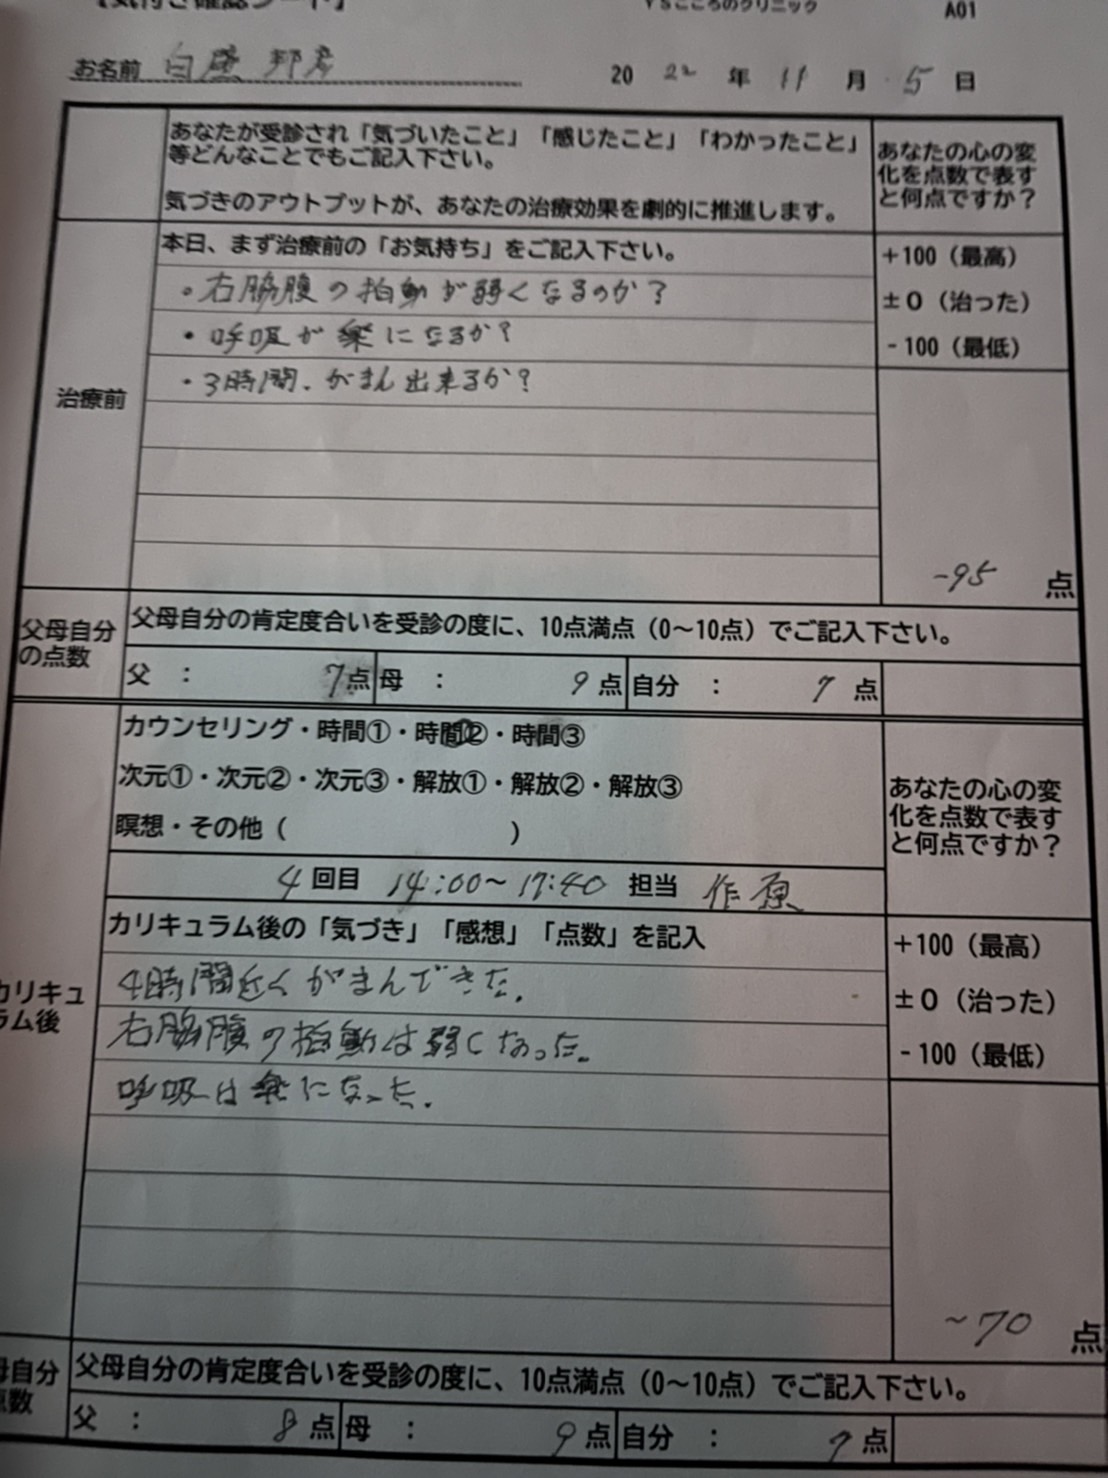 【気付き確認シート】
YSこころのクリニック
A01
お名前 白壁 邦彦
20 22 年 11 月 5 日
あなたが受診され「気づいたこと」「感じたこと」「わかったこと」
等どんなことでもご記入下さい。
気づきのアウトプットが、あなたの治療効果を劇的に推進します。
あなたの心の変
化を点数で表す
と何点ですか？
治療前
本日、まず治療前の「お気持ち」をご記入下さい。
・右脇腹の拍動が弱くなるのか？
・呼吸が楽になるか？
・3時間、がまん出来るか？
+100（最高）
±0（治った）
-100（最低）
-95 点
父母自分
の点数
父母自分の肯定度合いを受診の度に、10点満点（0～10点）でご記入下さい。
父 ： 7点 母 ： 9点 自分 ： 7点
カウンセリング・時間①・時間②・時間③
次元①・次元②・次元③・解放①・解放②・解放③
瞑想・その他（ ）
4回目 14:00～17:40 担当 作原
あなたの心の変
化を点数で表す
と何点ですか？
カリキュ
ラム後
カリキュラム後の「気づき」「感想」「点数」を記入
4時間近くがまんできた。
右脇腹の拍動は弱くなった。
呼吸は楽になった。
+100（最高）
±0（治った）
-100（最低）
-70 点
母自分
点数
父母自分の肯定度合いを受診の度に、10点満点（0～10点）でご記入下さい。
父 ： 8点 母 ： 9点 自分 ： 7点